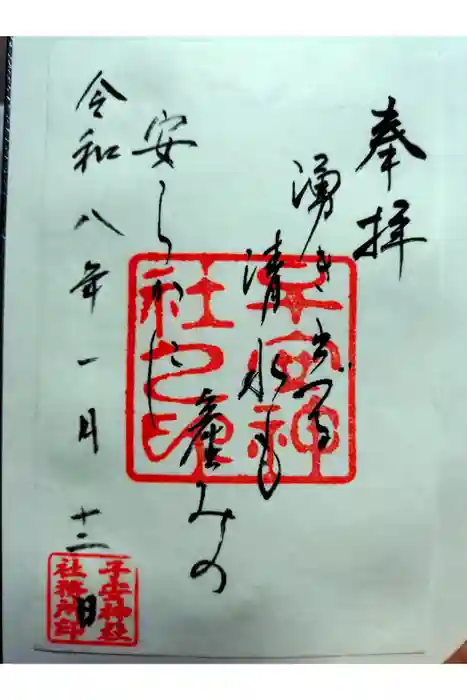 奉拝
湧き出る
清水も
安らかに
産みの
令和八年一月十二日
子安神
社之印
子安神社
社務所印